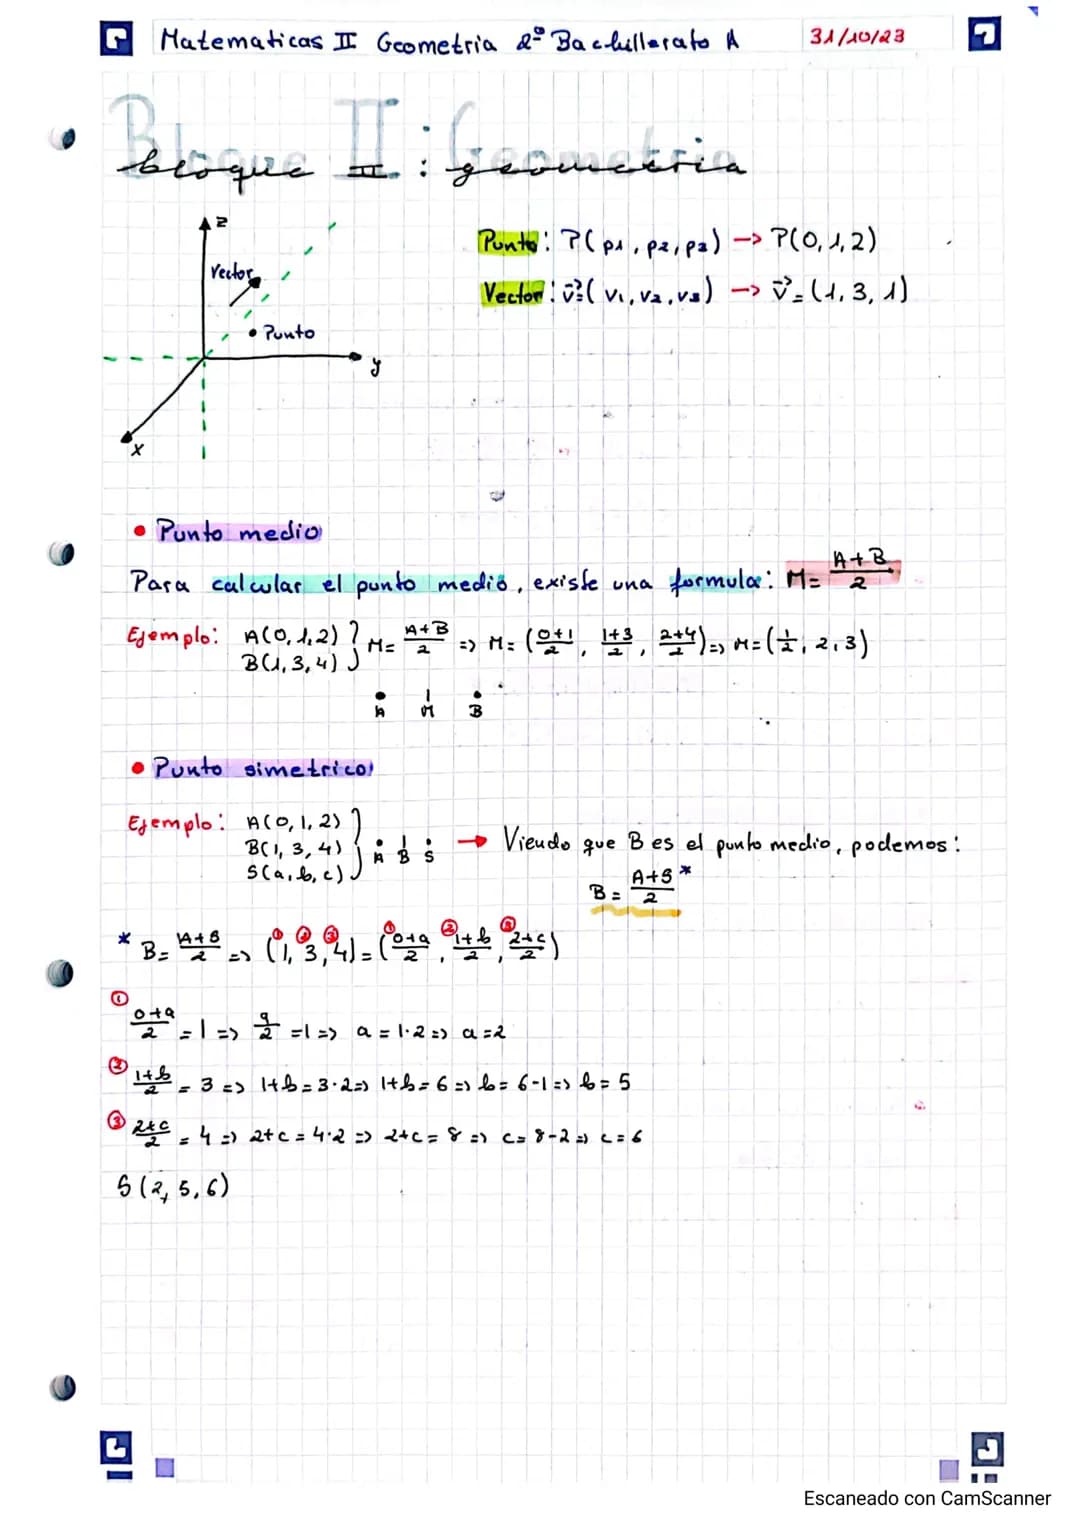 Matematicas II Geometria 2º Bachillerato A 31/10/23
Bloque II: Geometria
bloque II : geometria
z
Vector
Punto
y
x
Punto: P(p1, p2, p3) -> P(0,1,2)
Vector: v⃗=(v1, v2, v3) -> v⃗=(1, 3, 1)
• Punto medio
Para calcular el punto medio, existe una formula: M= (A+B)/2
Ejemplo: A(0,1,2) B(1,3,4) } M= (A+B)/2 => M= ((0+1)/2, (1+3)/2, (2+4)/2) => M=(1/2, 2,3)
A M B
• Punto simetrico
Ejemplo: A(0,1,2)
B(1,3,4)
S(a,b,c) } A B S → Viendo que B es el punto medio, podemos:
B= (A+S)/2 *
* B= (A+S)/2 => (1, 3, 4) = ((0+a)/2, (1+b)/2, (2+c)/2)
① ② ③ ① ② ③
① (0+a)/2 = 1 => a/2 =1 => a = 1·2 => a=2
② (1+b)/2 = 3 => 1+b=3·2 => 1+b=6 => b= 6-1 => b= 5
③ (2+c)/2 = 4 => 2+c = 4·2 => 2+c= 8 => c= 8-2 => c=6
S(2,5,6)
Escaneado con CamScanner